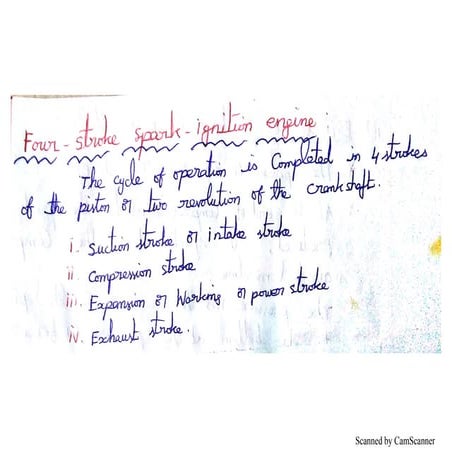 Four-stroke spark-ignition engine
The cycle of operation is Completed in 4 strokes
of the piston or two revolution of the crankshaft.
i. Suction stroke or intake stroke
ii. Compression stroke
iii. Expansion or Working or power stroke
iv. Exhaust stroke.
Scanned by CamScanner